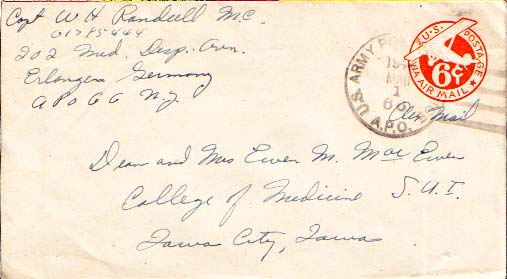 Capt W H Randall M.C.
01785464
202 Med. Disp. Avn.
Erlangen Germany
APO 66 N.Y.
U.S. POSTAGE
6¢
VIA AIR MAIL
U.S. ARMY
MAR
1
A.P.O.
Air Mail
Dean and Mrs Ewen M. MacEwen
College of Medicine S.U.I.
Iowa City, Iowa